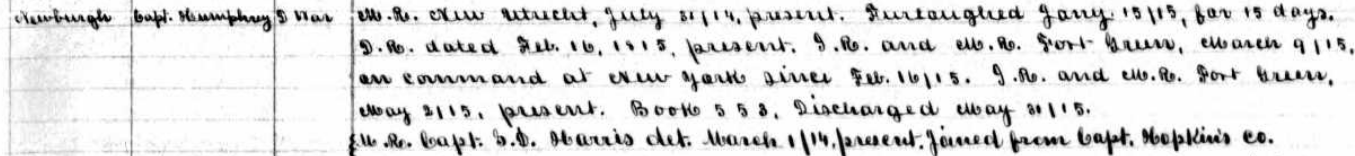 Newburgh Capt. Humphrey D War M.R. New Utrecht, July 31/14, present. Furloughed Jany. 15/15, for 15 days.
D.R. dated Feb. 16, 1815, present. I.R. and M.R. Fort Green, March 9/15,
on command at New York since Feb. 16/15. I.R. and M.R. Fort Green,
May 2/15, present. Book 553, Discharged May 31/15.
M.R. Capt. S.D. Harris det. March 1/14, present. Joined from Capt. Hopkin's co.